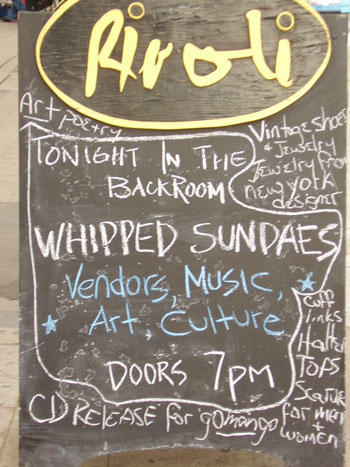 Rivoli
Art
poetry
Vintage shoes
& Jewelry
Jewelry from
new york
designer
TONIGHT IN THE
BACKROOM
WHIPPED SUNDAES
Vendors, Music,
Art, Culture
DOORS 7PM
Cuff
links
Halter
Tops
Scarves
for men
+ women
CD RELEASE for gomango